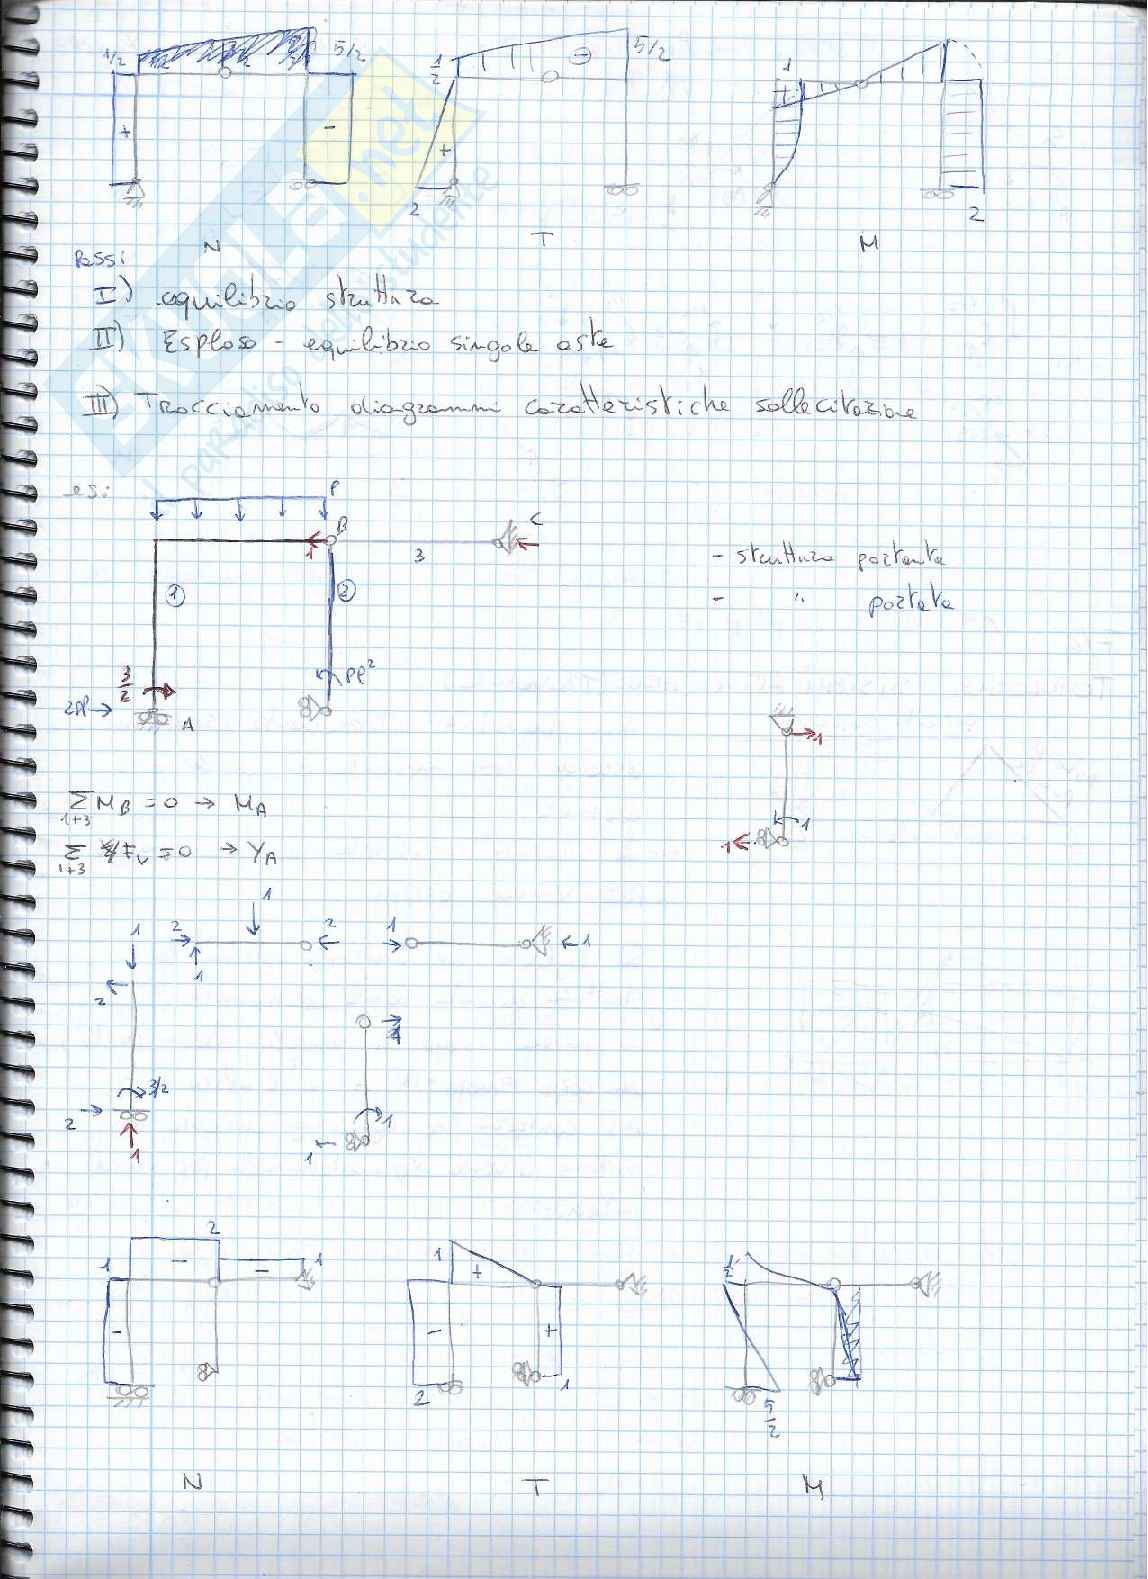 1/2 5/2 1/2 5/2 1
+ - + ⊖ +
2 2
N T M
Passi
I) equilibrio struttura
II) Esploso - equilibrio singole aste
III) Tracciamento diagrammi caratteristiche sollecitazione
SKUOLA.net
il paradiso dello studente
es:
P
B C
1 3
- struttura portante
① ② - " portata
3/2 Pl²
2Pl → A
1
ΣM_B = 0 → M_A
1+3
1 1
ΣF_V = 0 → Y_A
1+3
1
1 2 2 1 1
1
2
3/2 1
2
1 1
2
1 1 1 1/2
- - +
- - +
2 1
5/2
N T M